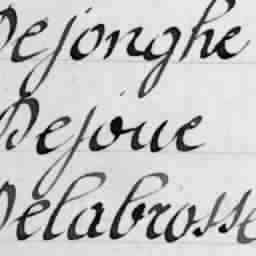 Dejonghe
Dejoue
Delabrosse